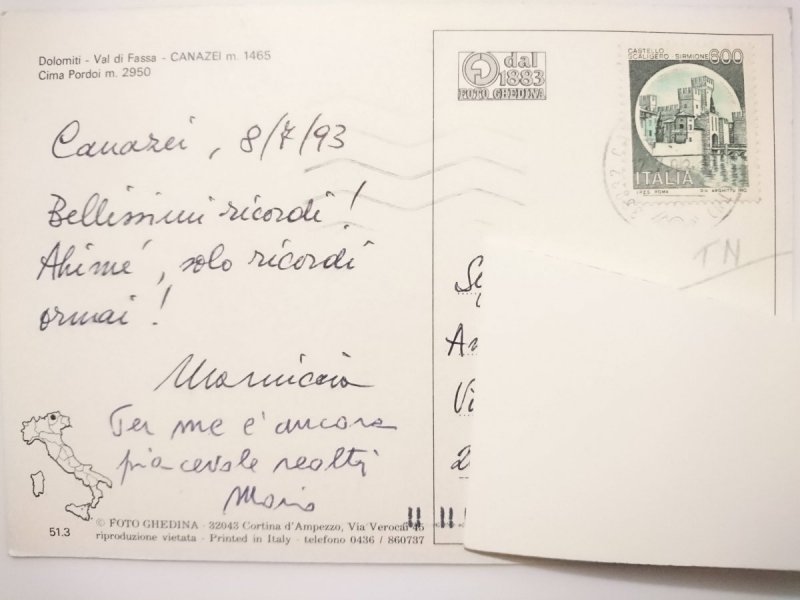 Dolomiti - Val di Fassa - CANAZEI m. 1465
Cima Pordoi m. 2950
Canazei, 8/7/93
Bellissimi ricordi!
Ahimé, solo ricordi
ormai!
Per me è ancora
piacevole realtà
Mario
51.3
© FOTO GHEDINA - 32043 Cortina d'Ampezzo, Via Verocai 45
riproduzione vietata - Printed in Italy - telefono 0436 / 860737
dal
1883
FOTO GHEDINA
CASTELLO
SCALIGERO - SIRMIONE 800
ITALIA
I.P.Z.S. ROMA
TN